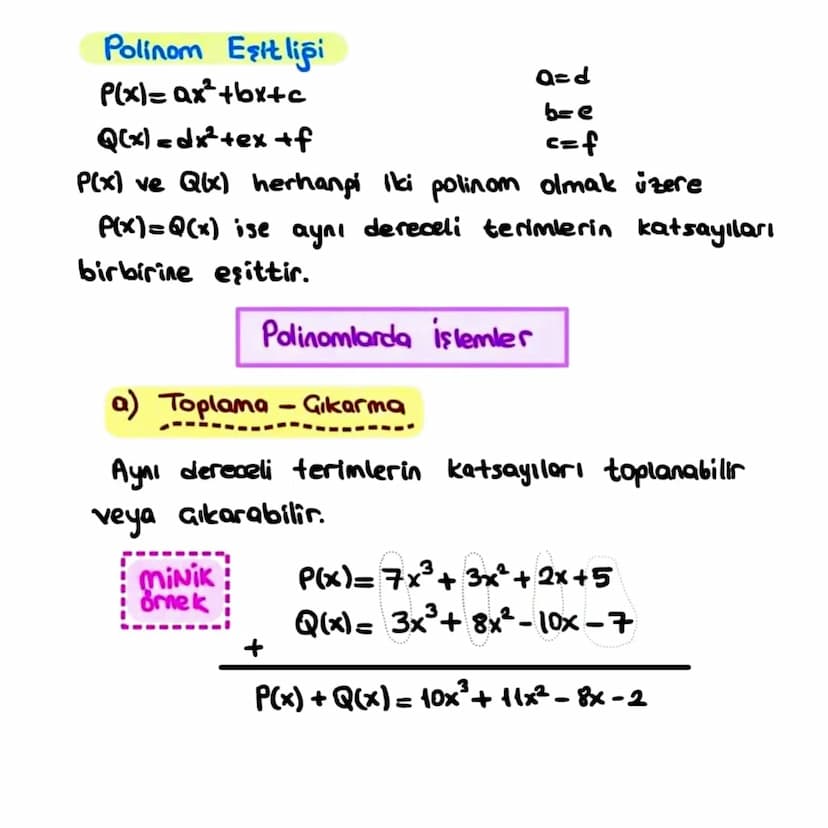 Polinom Eşitliği
P(x)= ax²+bx+c
a=d
b=e
Q(x)=dx²+ex+f
c=f
P(x) ve Q(x) herhangi iki polinom olmak üzere
P(x)=Q(x) ise aynı dereceli terimlerin katsayıları
birbirine eşittir.
Polinomlarda İşlemler
a) Toplama - Çıkarma
Aynı dereceli terimlerin katsayıları toplanabilir
veya çıkarabilir.
MİNİK
örnek
P(x)= 7x³+ 3x²+ 2x+5
Q(x)= 3x³+ 8x²-10x-7
+
P(x)+Q(x)= 10x³+ 11x²- 8x-2